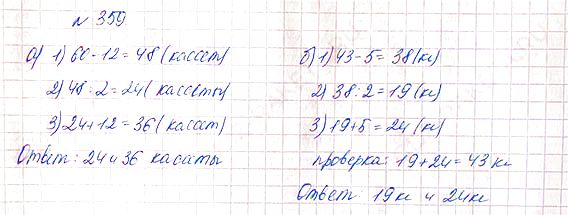 № 359
а) 1) 60 - 12 = 48 (кассет)
2) 48 : 2 = 24 (кассеты)
3) 24 + 12 = 36 (кассет)
Ответ: 24 и 36 касаты
б) 1) 43 - 5 = 38 (кг)
2) 38 : 2 = 19 (кг)
3) 19 + 5 = 24 (кг)
проверка: 19 + 24 = 43 кг
Ответ: 19 кг и 24 кг